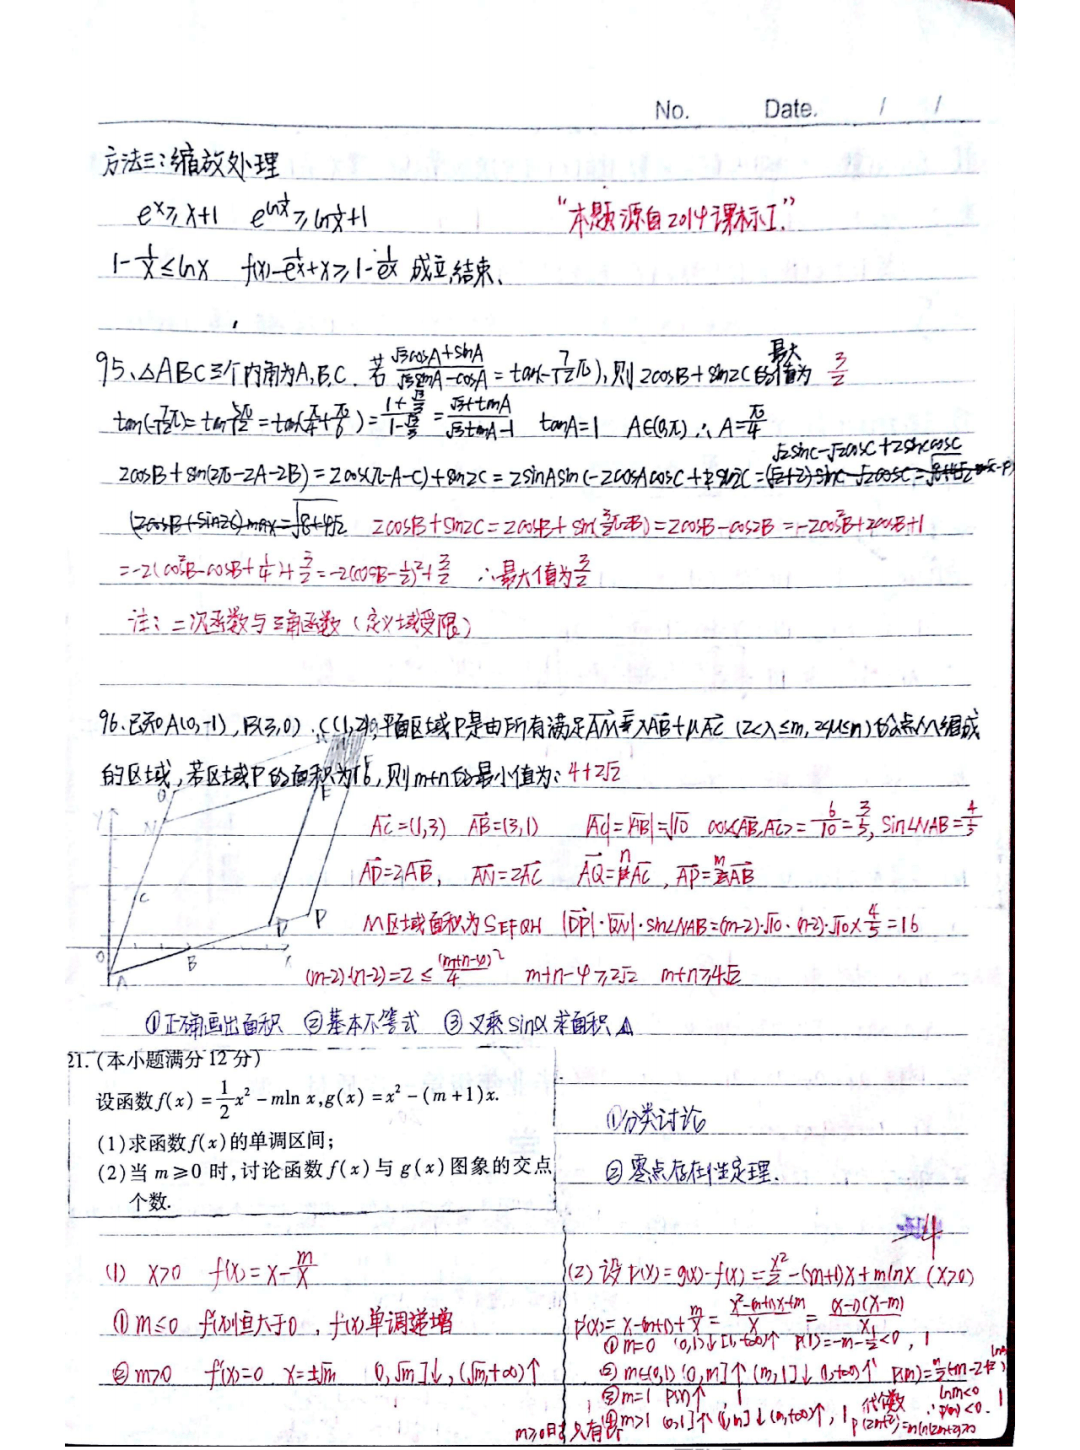 No. Date. / /
方法三：缩放处理
eˣ≥x+1 e^{ln 1/x}≥ln 1/x+1 "本题源自2014课标I."
1-1/x≤lnx 成立,结束.
95、△ABC三个内角为A,B,C. 若 (√3cosA+sinA)/(√3sinA-cosA)=tan(-7/12π),则2cosB+sin2C的最大值为 3/2
tan(-7/12π)=tan 5π/12=tan(π/4+π/6)= =(√3+tanA)/(√3tanA-1) tanA=1 A∈(0,π) ∴A=π/4
√2sinC-√2cosC+2sinCcosC
2cosB+sin(2π-2A-2B)=2cos(π-A-C)+sin2C=2sinAsinC-2cosAcosC+sin2C
(2cosB+sin2C)max=√(8+4√2) 2cosB+sin2C=2cosB+sin(3/2π-2B)=2cosB-cos2B=-2cos²B+2cosB+1
=-2(cos²B-cosB+1/4)+3/2=-2(cosB-1/2)²+3/2 ∴最大值为3/2
注：二次函数与三角函数（定义域受限）
96.已知A(0,-1),B(3,0),C(1,2),平面区域P是由所有满足AM=λAB+μAC (2<λ≤m,2<μ≤n)的点M组成
的区域,若区域P的面积为16,则m+n的最小值为：4+2√2
AC=(1,3) AB=(3,1) |AC|=|AB|=√10 cos<AB,AC>=6/10=3/5, sin∠NAB=4/5
AD=2AB, AN=2AC AQ=nAC, AP=mAB
M区域面积为S_EFQH |DP|·|QN|·sin∠NAB=(m-2)·√10·(n-2)·√10×4/5=16
(m-2)(n-2)=2≤(m+n-4)²/4 m+n-4≥2√2 m+n≥4√2
①正确画出面积 ②基本不等式 ③ sinα求面积
21.(本小题满分12分)
设函数f(x)=1/2x²-mln x,g(x)=x²-(m+1)x.
(1)求函数f(x)的单调区间;
(2)当m≥0时,讨论函数f(x)与g(x)图象的交点
个数.
①分类讨论
②零点存在性定理.
(1) x>0 f'(x)=x-m/x
①m≤0 f'(x)恒大于0,f(x)单调递增
②m>0 f'(x)=0 x=±√m (0,√m]↓,(√m,+∞)↑
(2)设F(x)=g(x)-f(x)=x²/2-(m+1)x+mlnx (x>0)
F'(x)=x-(m+1)+m/x=(x²-(m+1)x+m)/x=(x-1)(x-m)/x
①m=0 (0,1)↓[1,+∞)↑ F(1)=-m-1/2<0, 1
②m∈(0,1) (0,m]↑(m,1]↓(1,+∞)↑
③m=1 F(x)↑, 1
④m>1 (0,1]↑(1,m]↓(m,+∞)↑, 1